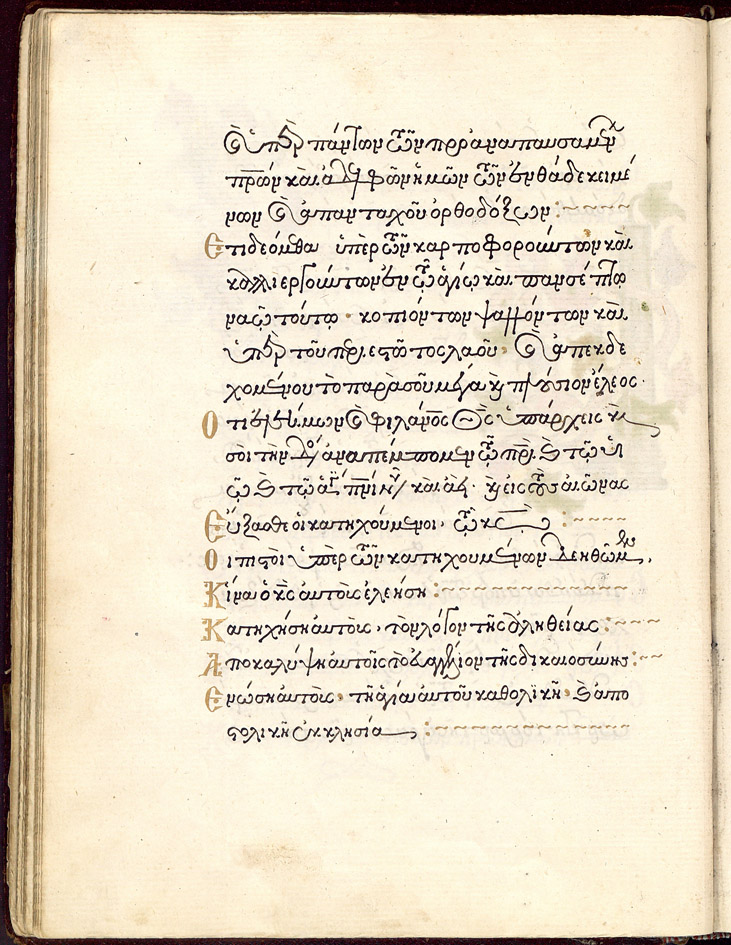 καὶ ὑπὲρ πάντων τῶν προαναπαυσαμέν
πρων καὶ ἀδελφῶν ἡμῶν τῶν ἐνθάδε κειμέ
νων καὶ ἁπανταχοῦ ὀρθοδόξων :~~~~
Ἔτι δεόμεθα ὑπὲρ τῶν καρποφορούντων καὶ
καλλιεργούντων ἐν τῷ ἁγίῳ καὶ πανσέπτῳ
ναῷ τούτῳ · κοπιόντων ψαλλόντων καὶ
ὑπὲρ τοῦ περιεστῶτος λαοῦ · καὶ ἀπεκδε
χομένου τὸ παρὰ σοῦ μέγα καὶ πλούσιον ἔλεος ·
Ὅτι ἐλεήμων καὶ φιλάνος Θς ὑπάρχεις καὶ
σοὶ τὴν δόξαν ἀναπέμπομεν τῷ πρὶ καὶ τῷ υἱ
ῷ καὶ τῷ ἁγ πνι νῦν καὶ ἀεὶ · καὶ εἰς τοὺς αἰῶνας
Εὔξασθε οἱ κατηχούμενοι · τῷ κω :~~~~
Οἱ πιστοὶ ὑπὲρ τῶν κατηχουμένων δεηθῶμεν .
Ἵνα ὁ κς αὐτοὺς ἐλεήση :~~~~
Κατηχήση αὐτοὺς · τὸν λόγον τῆς ἀληθείας :~~~
Ἀποκαλύψη αὐτοῖς τὸ εὐαγγέλιον τῆς δικαιοσύνης :~~
Ἑνώση αὐτοὺς · τῆ ἁγία αὐτοῦ καθολικῆ · καὶ ἀπο
στολικῆ ἐκκλησία :~~~~